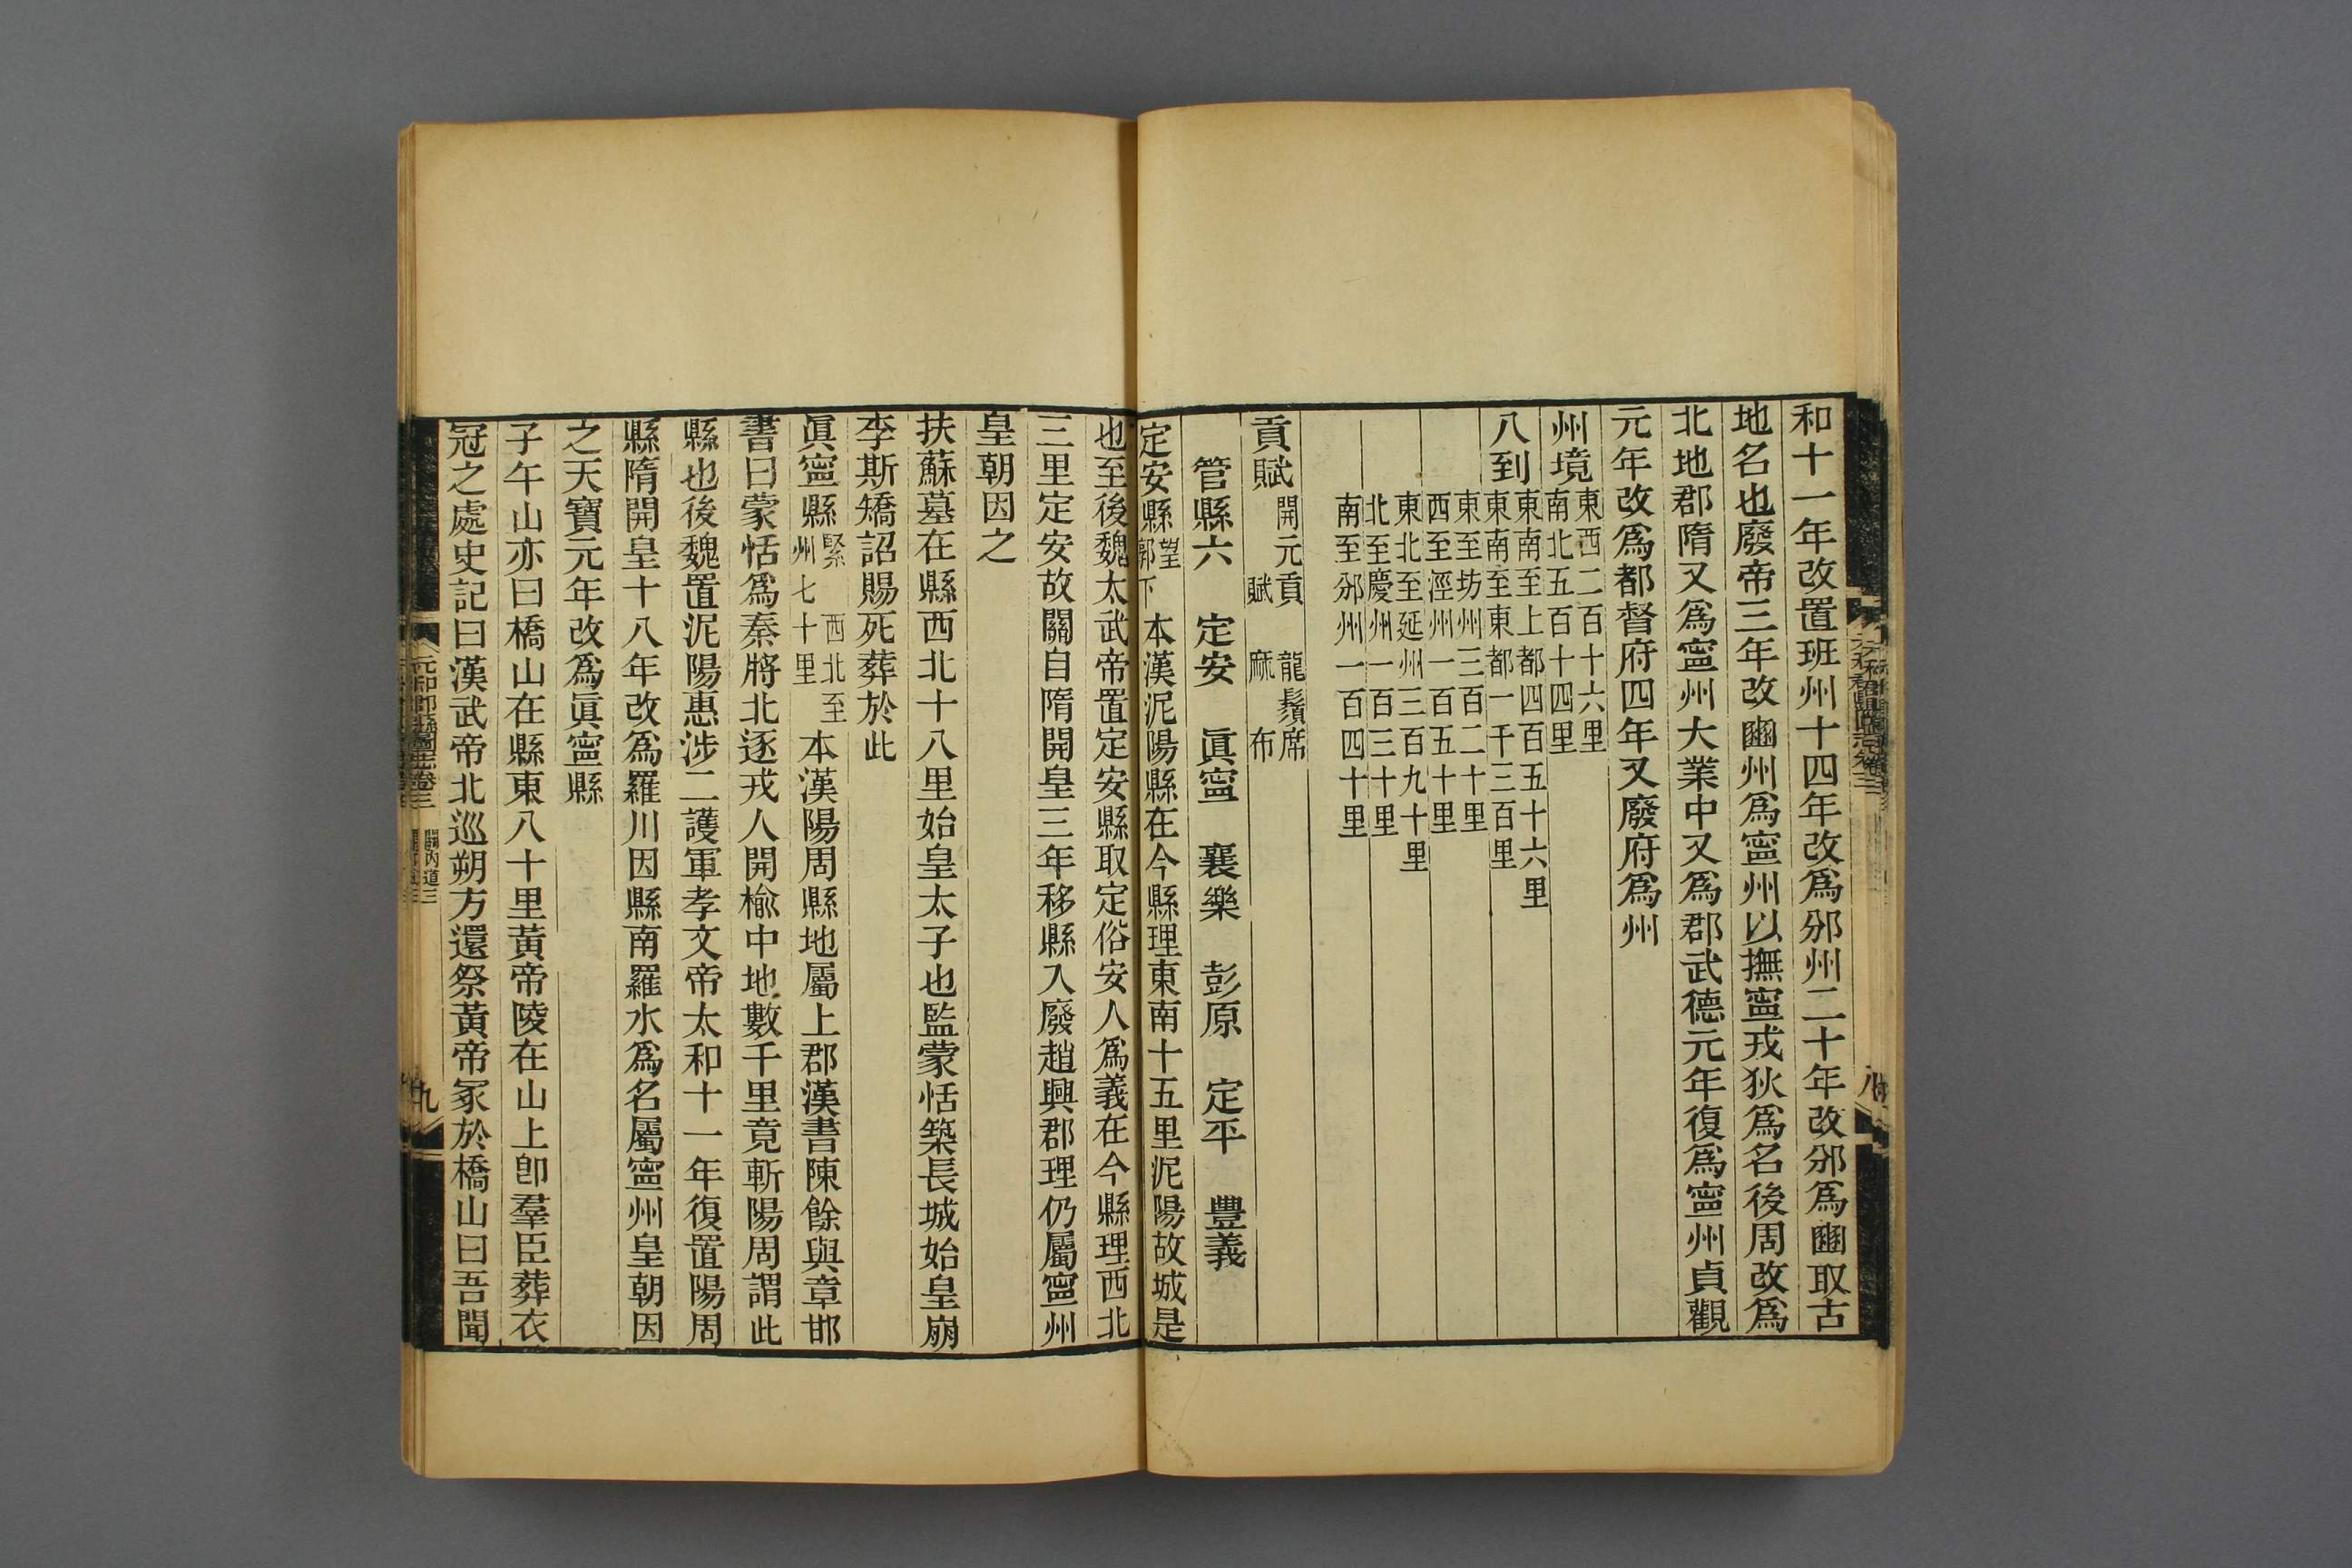 和十一年改置班州十四年改爲邠州二十年改邠爲豳取古
地名也廢帝三年改豳州爲寧州以撫寧戎狄爲名後周改爲
北地郡隋又爲寧州大業中又爲郡武德元年復爲寧州貞觀
元年改爲都督府四年又廢府爲州
州境東西二百十六里
南北五百十四里
八到東南至上都四百五十六里
東南至東都一千三百里
東至坊州三百二十里
西至涇州一百五十里
東北至延州三百九十里
北至慶州一百三十里
南至邠州一百四十里
貢賦開元貢 龍鬚席
賦 麻 布
管縣六 定安 眞寧 襄樂 彭原 定平 豐義
定安縣望
郭下
本漢泥陽縣在今縣理東南十五里泥陽故城是
也至後魏太武帝置定安縣取定俗安人爲義在今縣理西北
三里定安故關自隋開皇三年移縣入廢趙興郡理仍屬寧州
皇朝因之
扶蘇墓在縣西北十八里始皇太子也監蒙恬築長城始皇崩
李斯矯詔賜死葬於此
眞寧縣緊 西北至
州七十里
本漢陽周縣地屬上郡漢書陳餘與章邯
書曰蒙恬爲秦將北逐戎人開榆中地數千里竟斬陽周謂此
縣也後魏置泥陽惠涉二護軍孝文帝太和十一年復置陽周
縣隋開皇十八年改爲羅川因縣南羅水爲名屬寧州皇朝因
之天寶元年改爲眞寧縣
子午山亦曰橋山在縣東八十里黃帝陵在山上卽羣臣葬衣
冠之處史記曰漢武帝北巡朔方還祭黃帝冢於橋山曰吾聞
元和郡縣圖志卷三
關內道三
九